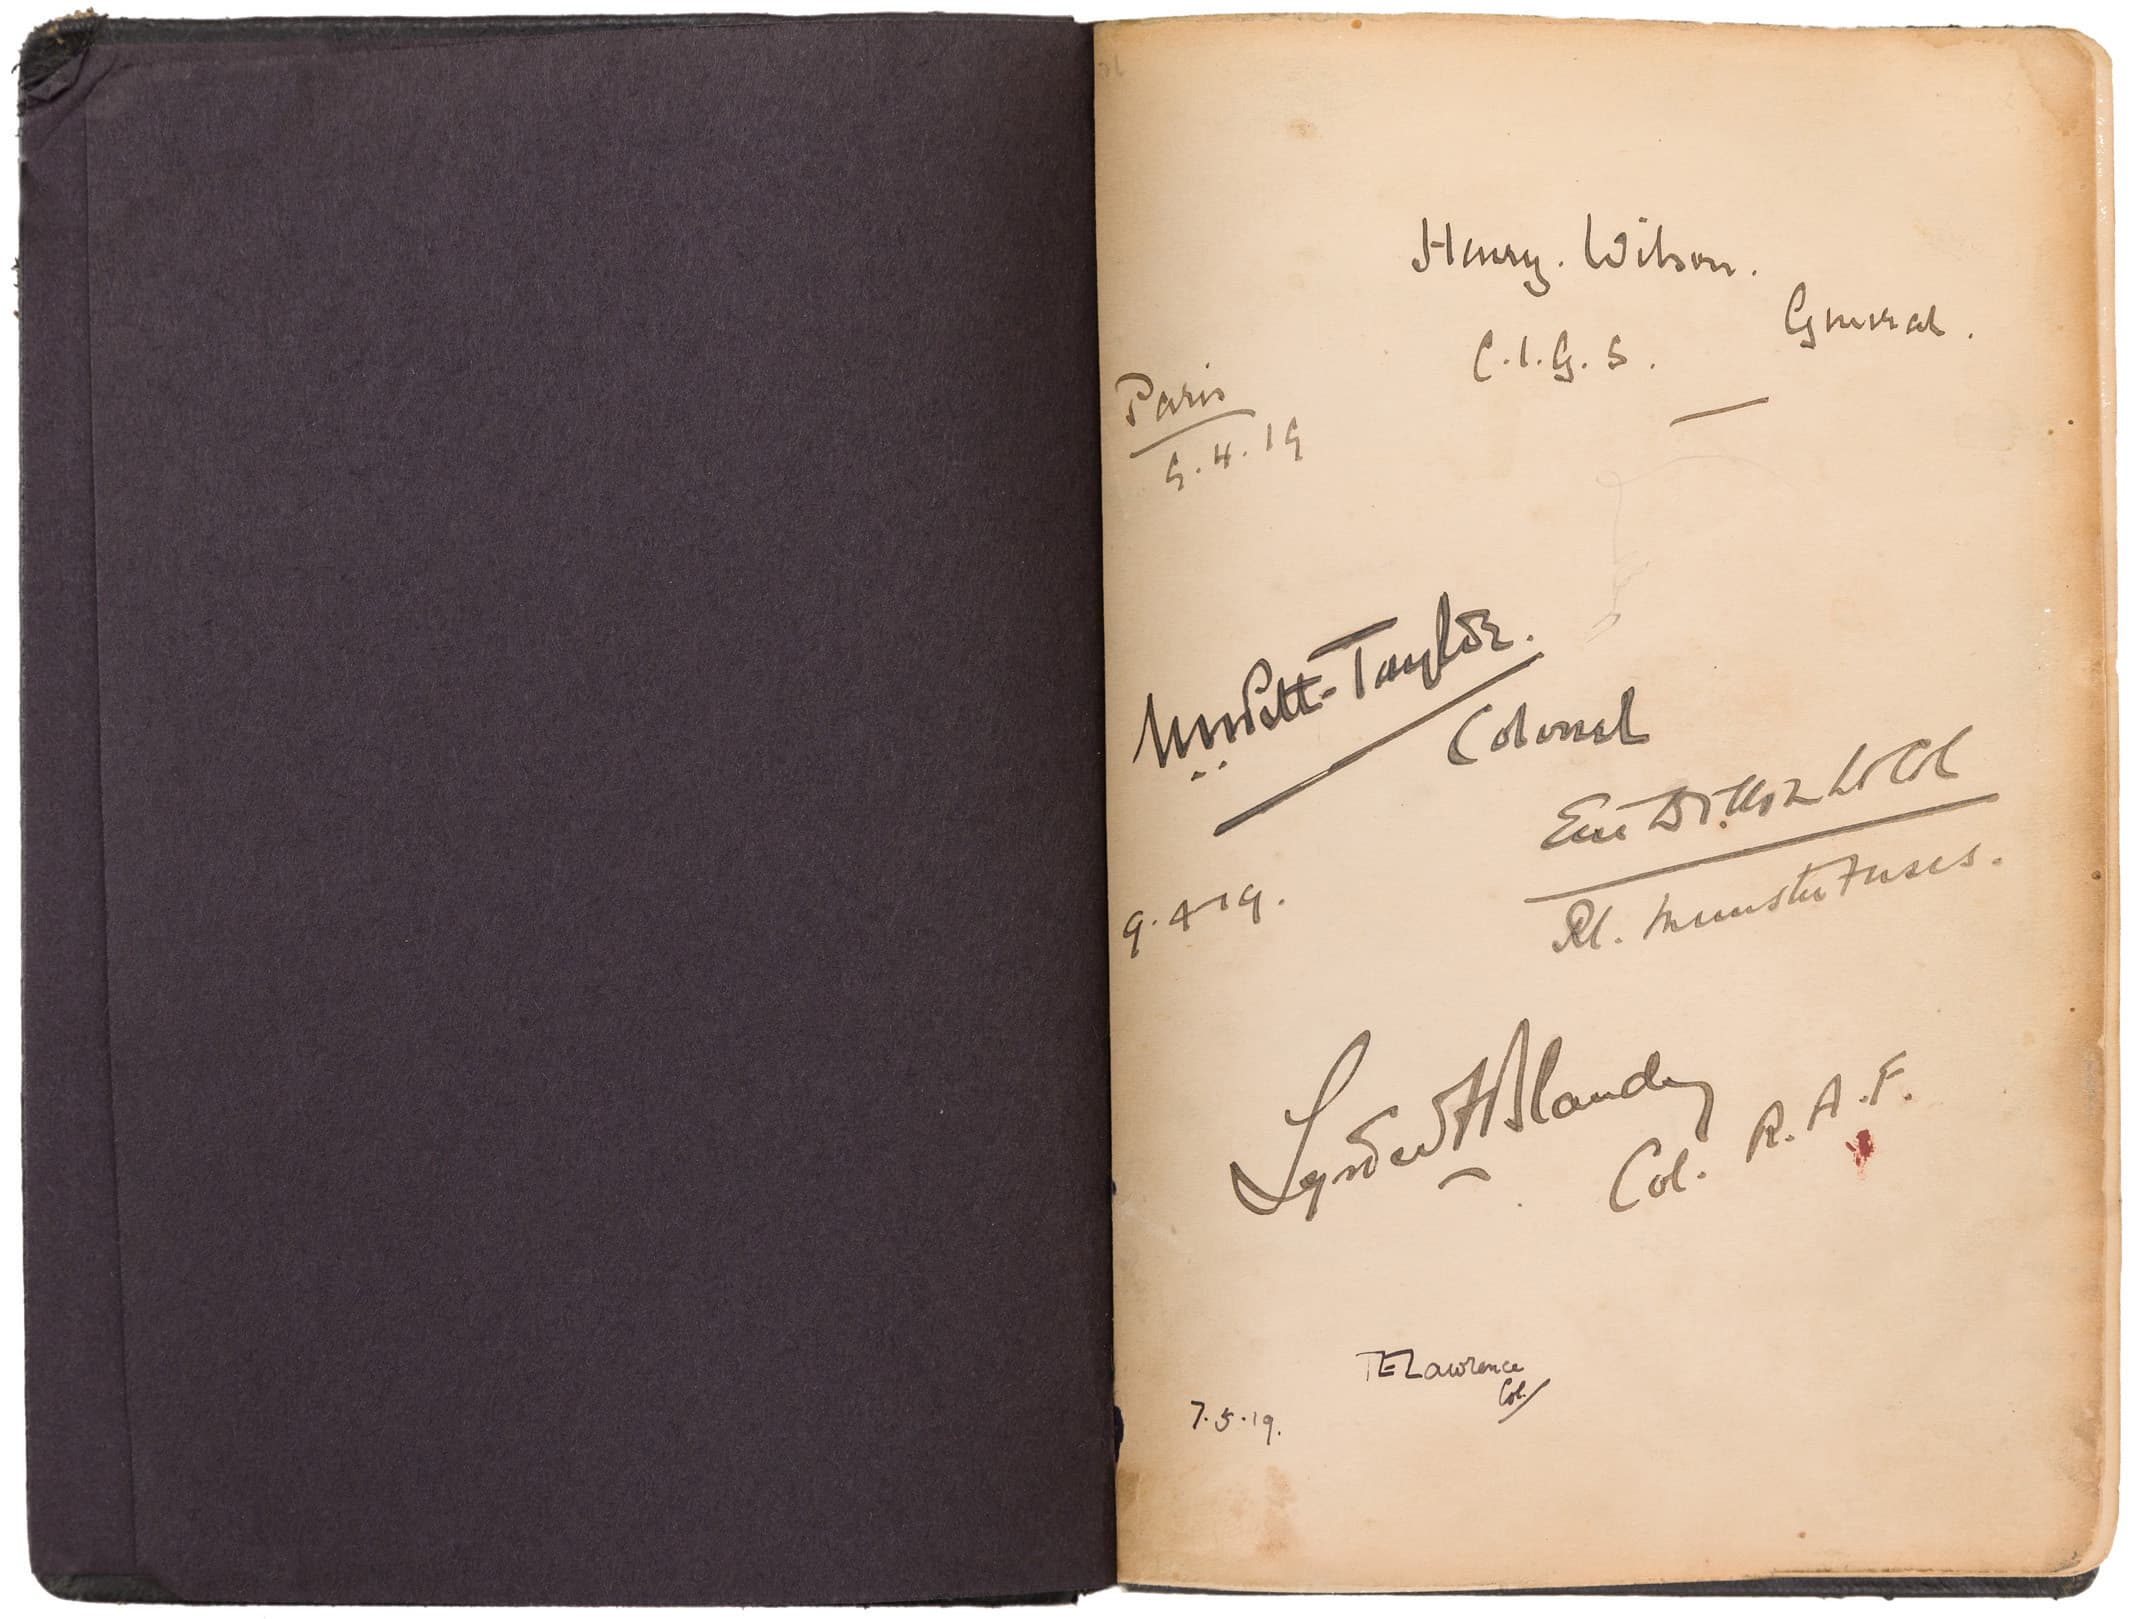 Henry. Wilson.
General.
C.I.G.S.
Paris
9.4.19
Pitt-Taylor.
Colonel
Eric Dillon Lt Col
Rl. Munster Fusrs.
9.4.19.
Blandy
Col. R.A.F.
TELawrence
Col.
7.5.19.